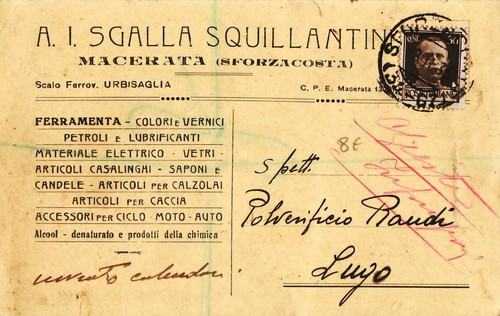 A. I. SGALLA SQUILLANTINI
MACERATA (SFORZACOSTA)
Scalo Ferrov. URBISAGLIA
C. P. E. Macerata
FERRAMENTA - COLORI E VERNICI
PETROLI E LUBRIFICANTI
MATERIALE ELETTRICO - VETRI -
ARTICOLI CASALINGHI - SAPONI E
CANDELE - ARTICOLI PER CALZOLAI
ARTICOLI PER CACCIA
ACCESSORI PER CICLO - MOTO - AUTO
Alcool - denaturato e prodotti della chimica
8€
Spett.
Polverificio Randi
Lugo